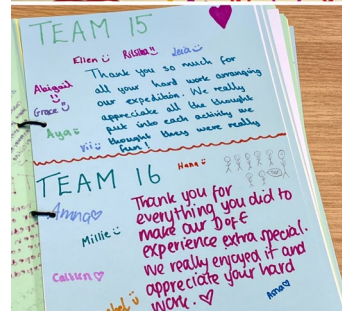 TEAM 15
Ellen
Abigail
Grace
Aya
Vii
Thank you so much for
all your hard work arranging
our expedition. We really
appreciate all the thought
put into each activity we
thought they were really
fun!
TEAM 16
Hana
Amna
Millie
Caitlin
Anna
Thank you for
everything you did to
make our DofE
experience extra special.
We really enjoyed it and
appreciate your hard
work.